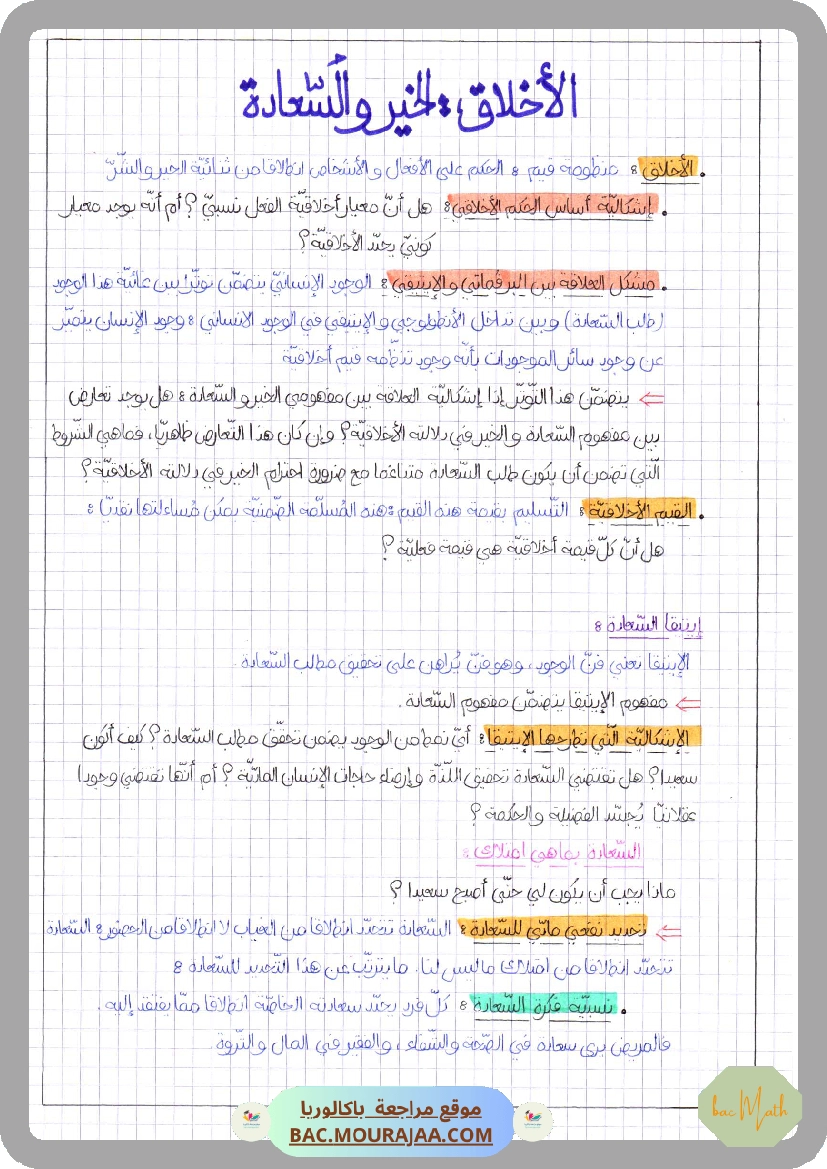 الأخلاق : الخير والسّعادة
• الأخلاق : منظومة قيم : الحكم على الأفعال والأشخاص انطلاقا من ثنائيّة الخير والشّرّ
• إشكاليّة أساس الحكم الأخلاقي : هل أنّ معيار أخلاقيّة الفعل نسبيّ ؟ أم أنّه يوجد معيار
كونيّ يحدّد الأخلاقيّة ؟
• مشكل العلاقة بين البرڤماتي والإيتيقي : الوجود الإنسانيّ يتضمّن توتّرا بين غائيّة هذا الوجود
(طلب السّعادة) وبين تداخل الأنطولوجي والإيتيقي في الوجود الانساني : وجود الإنسان يتميّز
عن وجود سائر الموجودات بأنّه وجود تنظّمه قيم أخلاقيّة
⇐ يتضمّن هذا التّوتّر إذا إشكاليّة العلاقة بين مفهومي الخير والسّعادة : هل يوجد تعارض
بين مفهوم السّعادة والخير في دلالته الأخلاقيّة ؟ وإن كان هذا التّعارض ظاهريّا، فماهي الشّروط
الّتي تضمن أن يكون طلب السّعادة متناغما مع ضرورة احترام الخير في دلالته الأخلاقيّة ؟
• القيم الأخلاقيّة : التّسليم بقيمة هذه القيم : هذه المُسلّمة الضّمنيّة يمكن مُساءلتها نقديّا :
هل أنّ كلّ قيمة أخلاقيّة هي قيمة فعليّة ؟
إيتيقا السّعادة :
الإيتيقا تعني فنّ الوجود، وهو فنّ يُراهن على تحقيق مطلب السّعادة.
⇐ مفهوم الإيتيقا يتضمّن مفهوم السّعادة.
الإشكاليّة الّتي تطرحها الإيتيقا : أيّ نمط من الوجود يضمن تحقّق مطلب السّعادة ؟ كيف أكون
سعيدا ؟ هل تقتضي السّعادة تحقيق اللّذّة وإرضاء حاجات الإنسان المادّيّة ؟ أم أنّها تقتضي وجودا
عقلانيّا يُجسّد الفضيلة والحكمة ؟
السّعادة بماهي امتلاك :
ماذا يجب أن يكون لي حتّى أصبح سعيدا ؟
⇐ تحديد نفعي مادّي للسّعادة : السّعادة تتحدّد انطلاقا من الغياب لا انطلاقا من الحضور : السّعادة
تتحدّد انطلاقا من امتلاك ماليس لنا. ما يترتّب عن هذا التّحديد للسّعادة :
• نسبيّة فكرة السّعادة : كلّ فرد يحدّد سعادته الخاصّة انطلاقا ممّا يفتقد إليه.
فالمريض يرى سعادة في الصّحّة والشّفاء، والفقير في المال والثّروة
موقع مراجعة باكالوريا
BAC.MOURAJAA.COM
bac Math